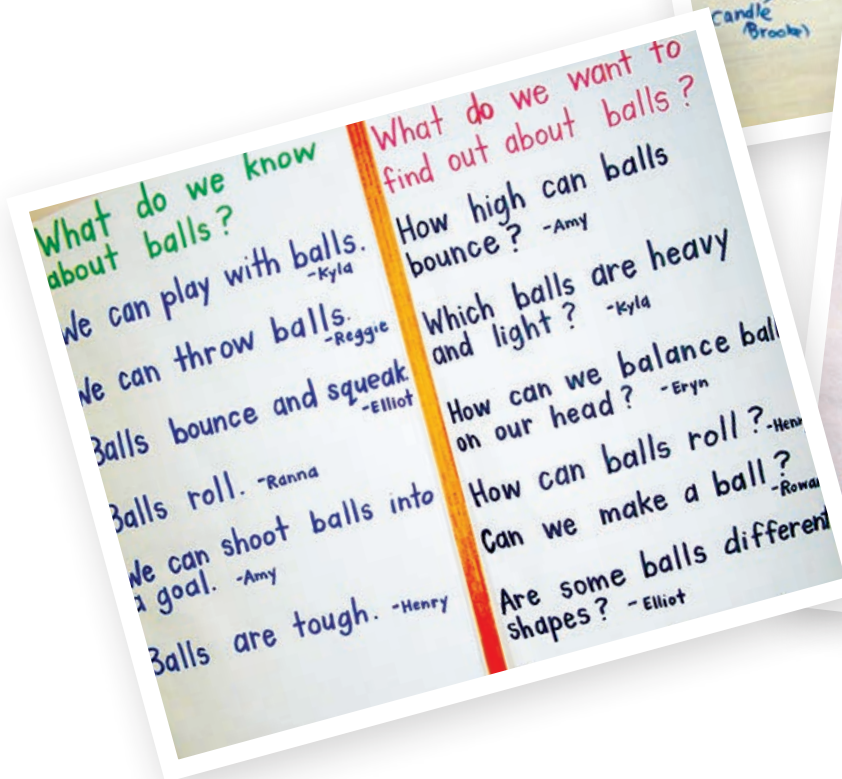 Candle
Brooke)
What do we know
about balls?
We can play with balls.
-Kyla
We can throw balls.
-Reggie
Balls bounce and squeak.
-Elliot
Balls roll. -Ranna
We can shoot balls into
a goal. -Amy
Balls are tough. -Henry
What do we want to
find out about balls?
How high can balls
bounce? -Amy
Which balls are heavy
and light? -Kyla
How can we balance ball
on our head? -Eryn
How can balls roll? -Hen
Can we make a ball?
-Rowa
Are some balls different
shapes? -Elliot